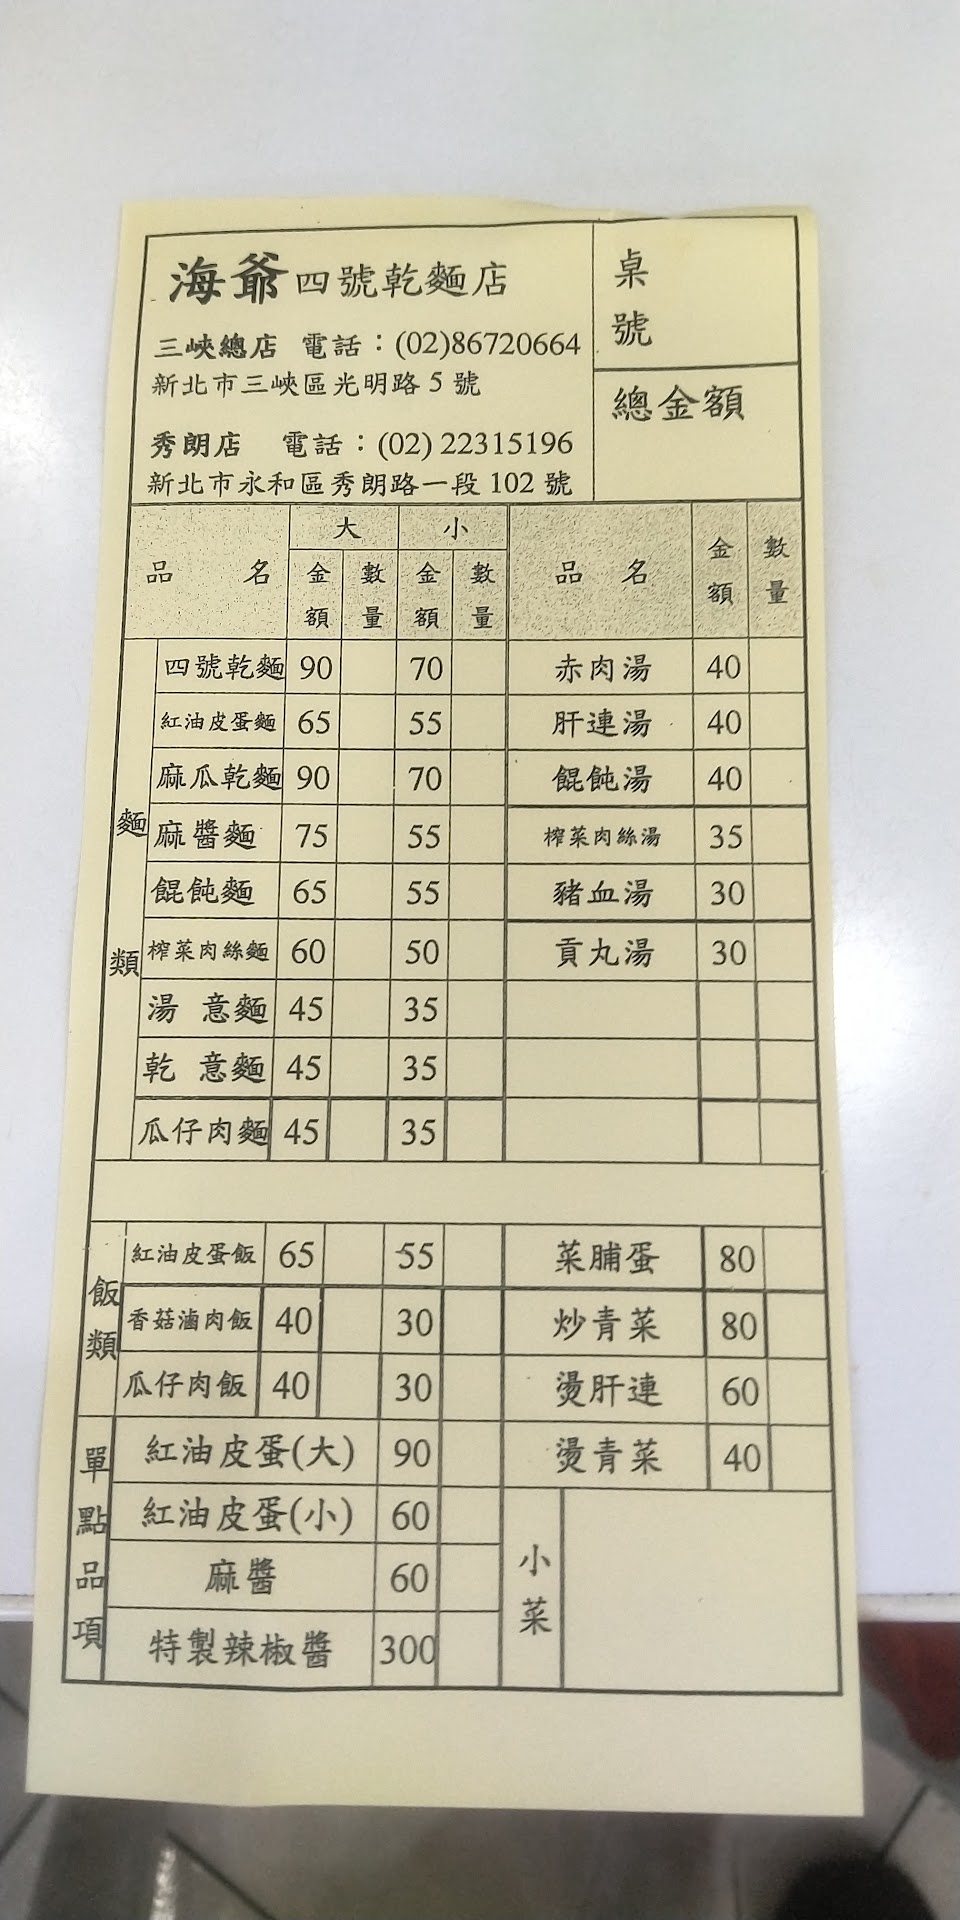 海爺四號乾麵店
三峽總店 電話：(02)86720664
新北市三峽區光明路 5 號
秀朗店 電話：(02) 22315196
新北市永和區秀朗路一段 102 號
桌號
總金額
品名 大 小 品名 金額 數量
金額 數量 金額 數量
麵類
四號乾麵 90 70 赤肉湯 40
紅油皮蛋麵 65 55 肝連湯 40
麻瓜乾麵 90 70 餛飩湯 40
麻醬麵 75 55 榨菜肉絲湯 35
餛飩麵 65 55 豬血湯 30
榨菜肉絲麵 60 50 貢丸湯 30
湯 意麵 45 35
乾 意麵 45 35
瓜仔肉麵 45 35
飯類
紅油皮蛋飯 65 55 菜脯蛋 80
香菇滷肉飯 40 30 炒青菜 80
瓜仔肉飯 40 30 燙肝連 60
單點品項
紅油皮蛋(大) 90 燙青菜 40
紅油皮蛋(小) 60
麻醬 60
特製辣椒醬 300
小菜